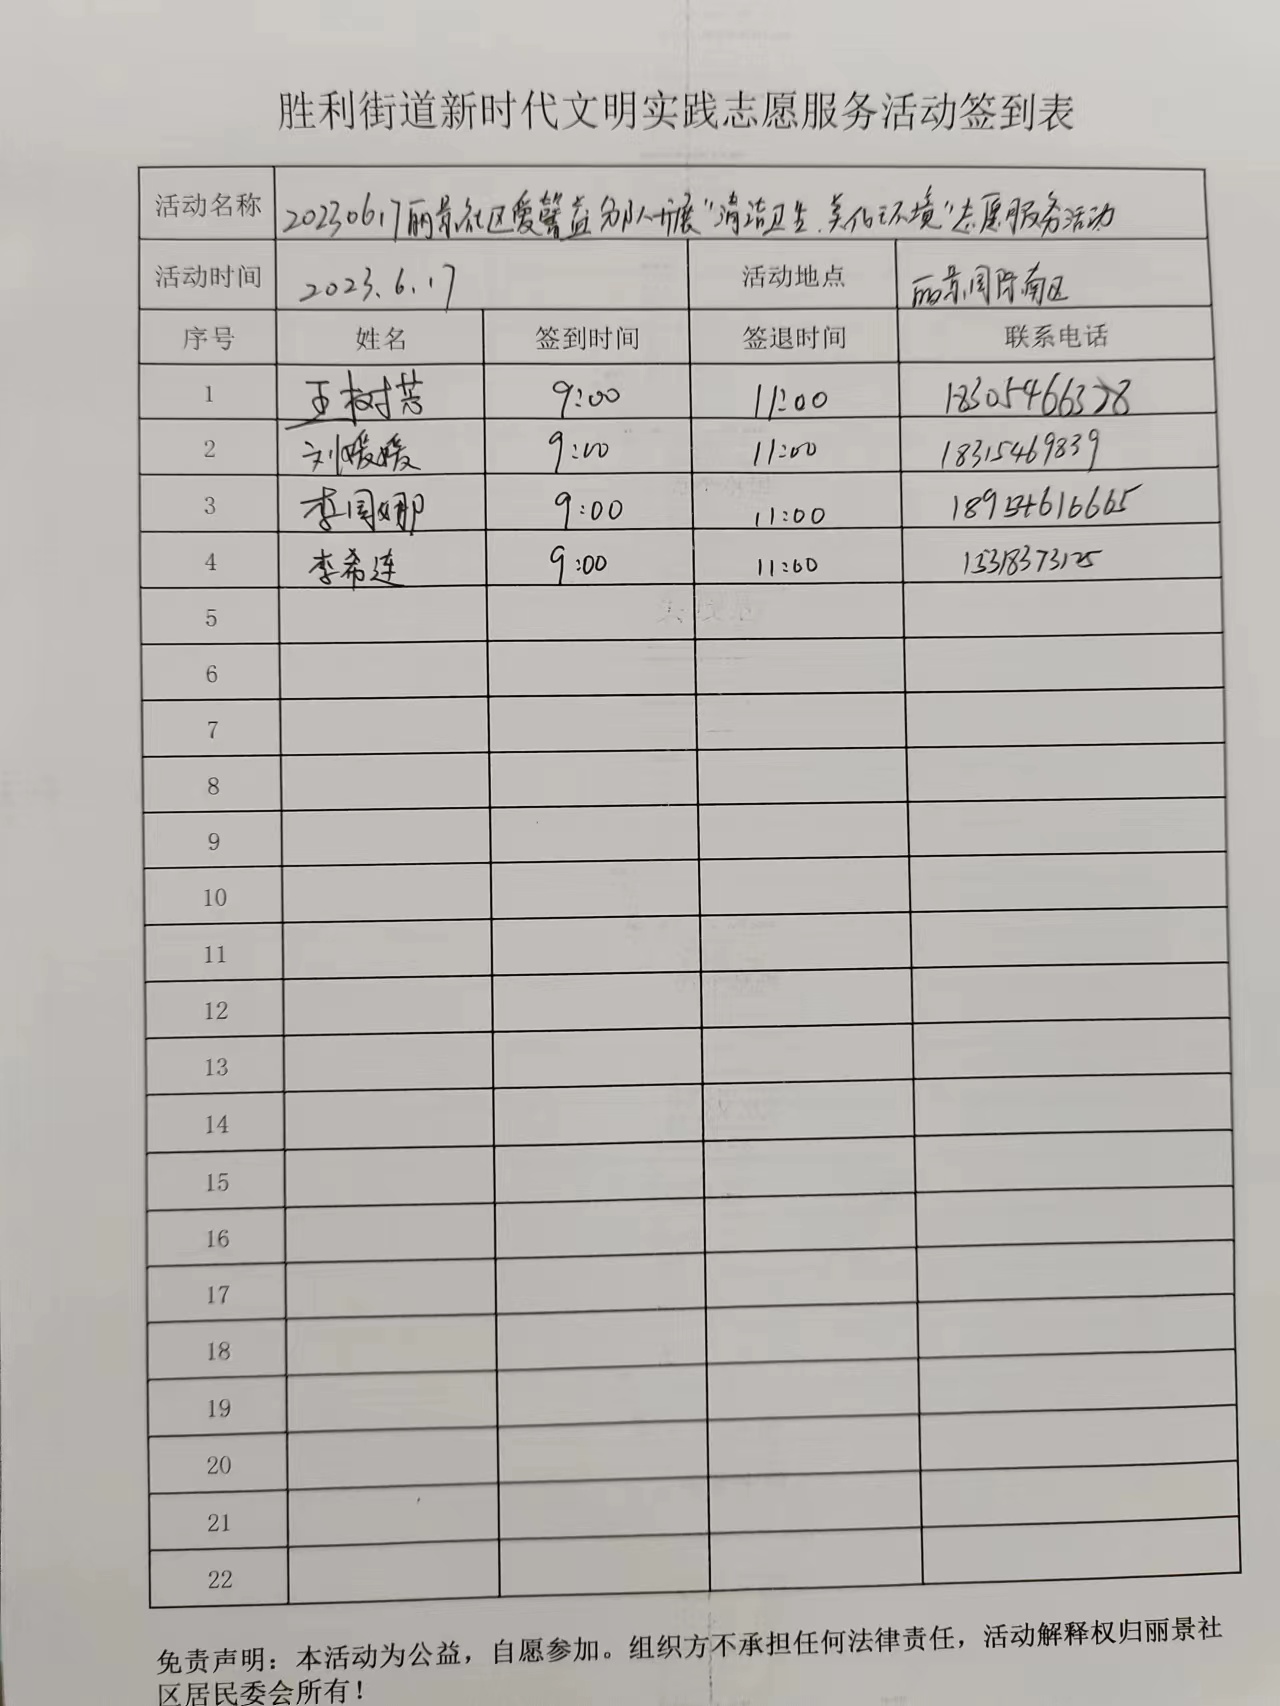 胜利街道新时代文明实践志愿服务活动签到表
活动名称 20230617丽景社区爱馨益分队开展“清洁卫生、美化环境”志愿服务活动
活动时间 2023.6.17 活动地点 丽景国际南区
序号 姓名 签到时间 签退时间 联系电话
1 王树芸 9:00 11:00 18305466328
2 刘媛媛 9:00 11:00 18315469839
3 李国娜 9:00 11:00
4 李希连 9:00 11:00 15318373125
5
6
7
8
9
10
11
12
13
14
15
16
17
18
19
20
21
22
免责声明：本活动为公益，自愿参加。组织方不承担任何法律责任，活动解释权归丽景社
区居民委会所有！